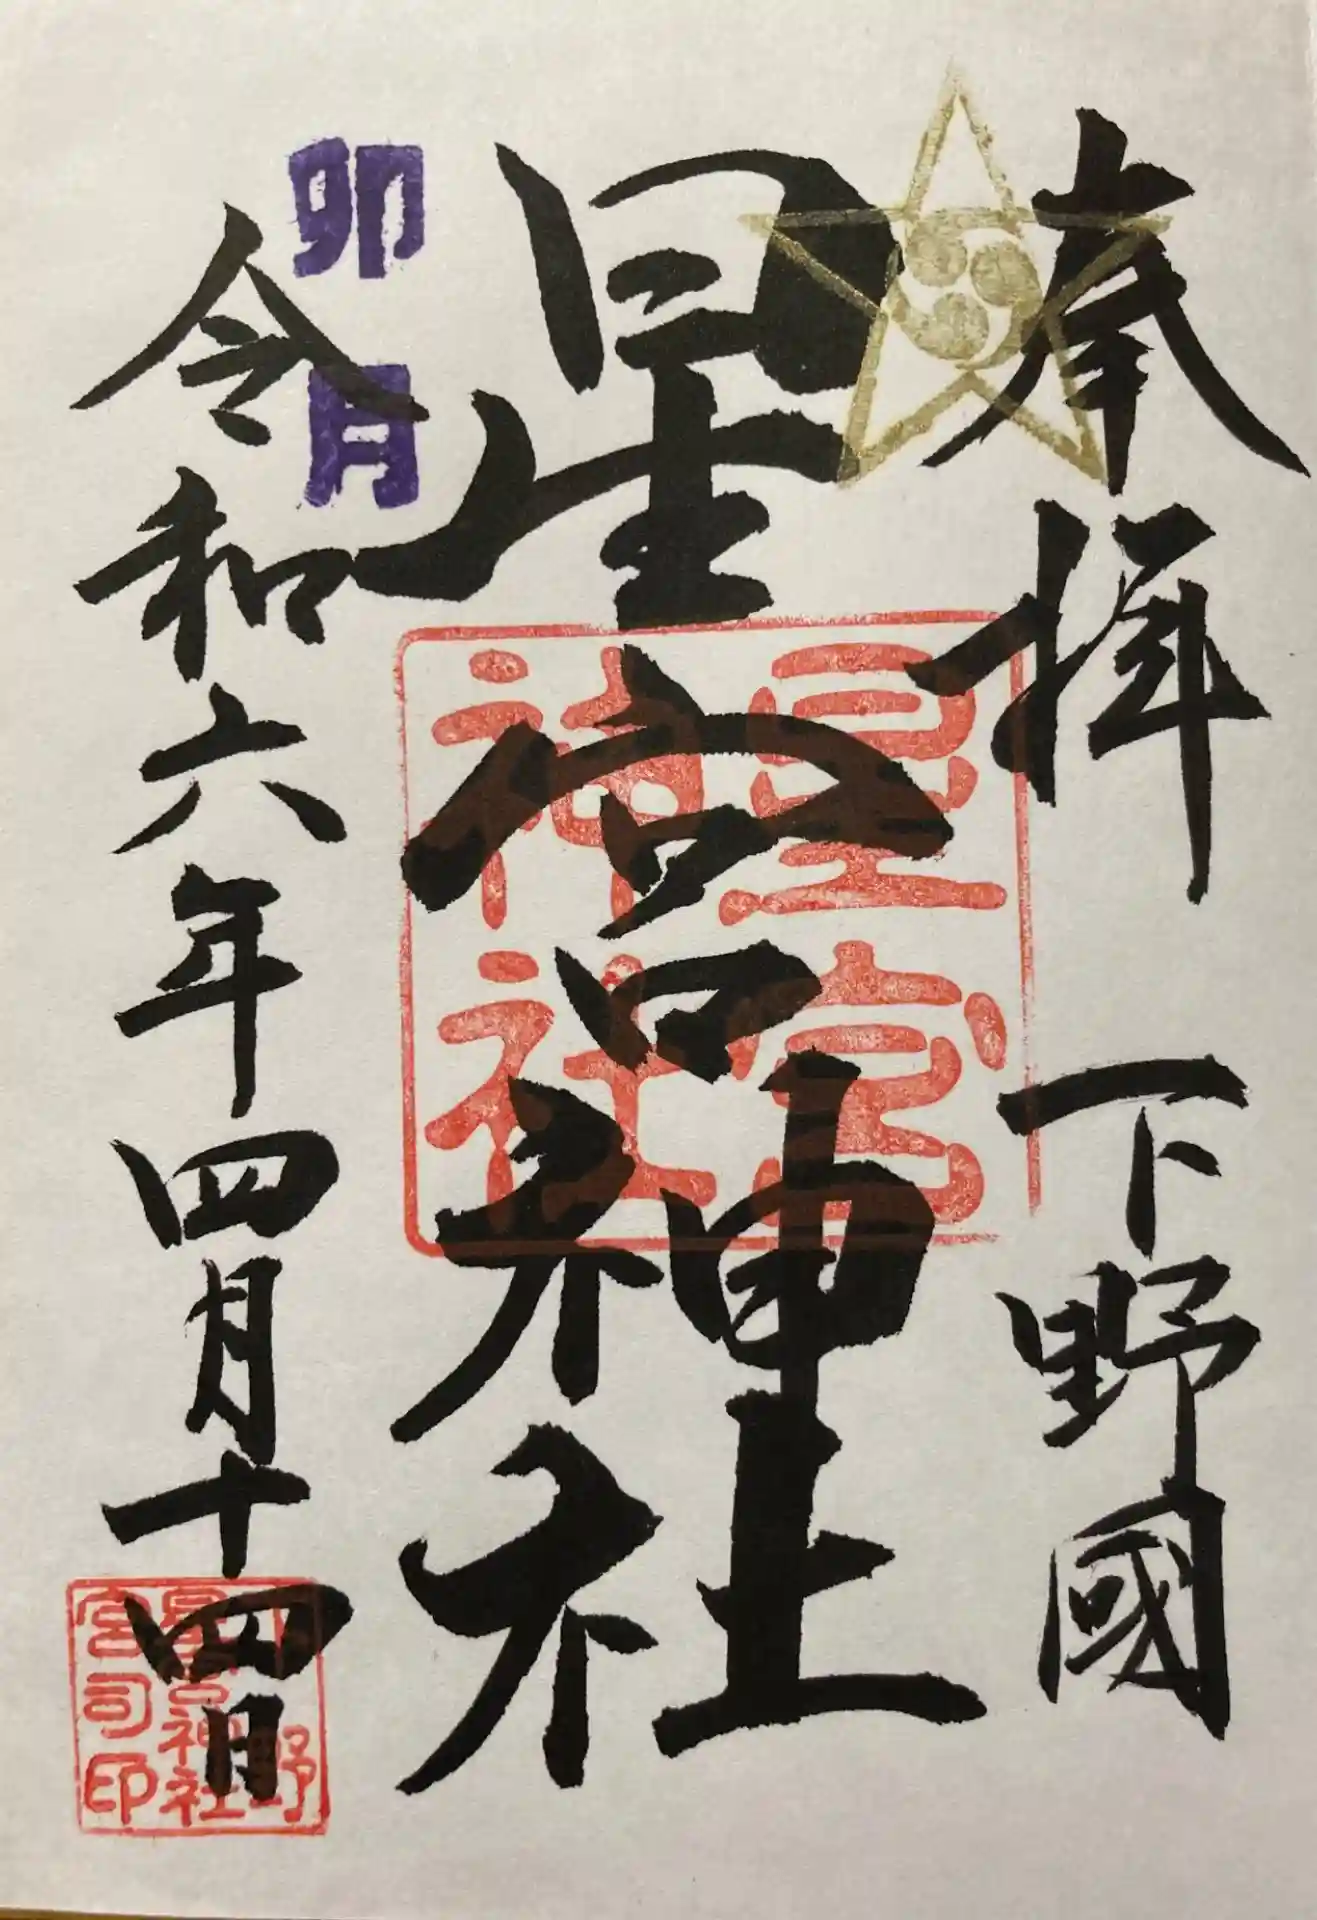 奉拝 下野國
星宮神社
星宮神社
卯月
令和六年四月十四日
下野
星宮神社
宮司印